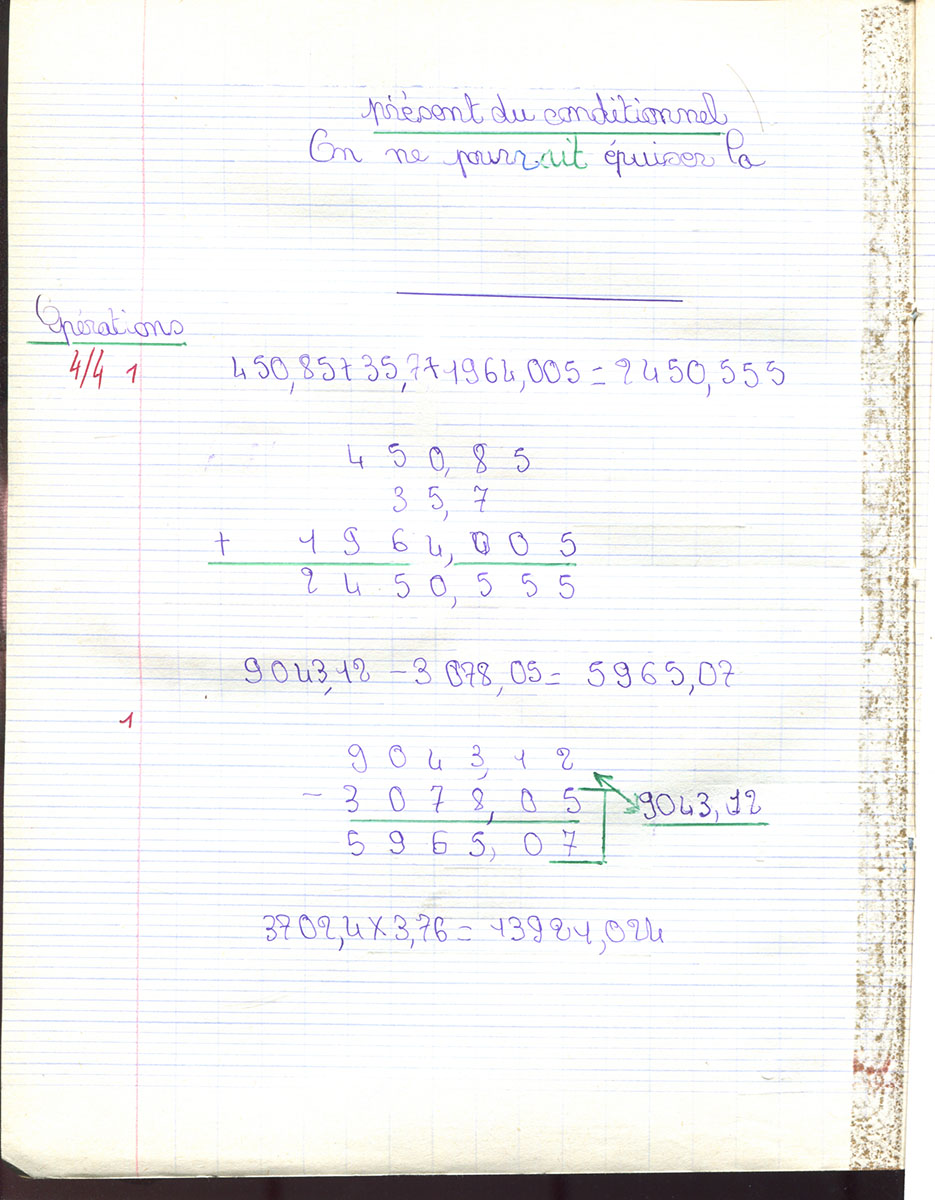 présent du conditionnel
On ne pourrait épuiser la
Opérations
4/4 1 450,85+35,7+1964,005=2450,555
4 5 0, 8 5
3 5, 7
+ 1 9 6 4, 0 0 5
2 4 5 0, 5 5 5
9043,12 - 3078,05 = 5965,07
1
9 0 4 3, 1 2
- 3 0 7 8, 0 5 9043,12
5 9 6 5, 0 7
3702,4 × 3,76 = 13921,024